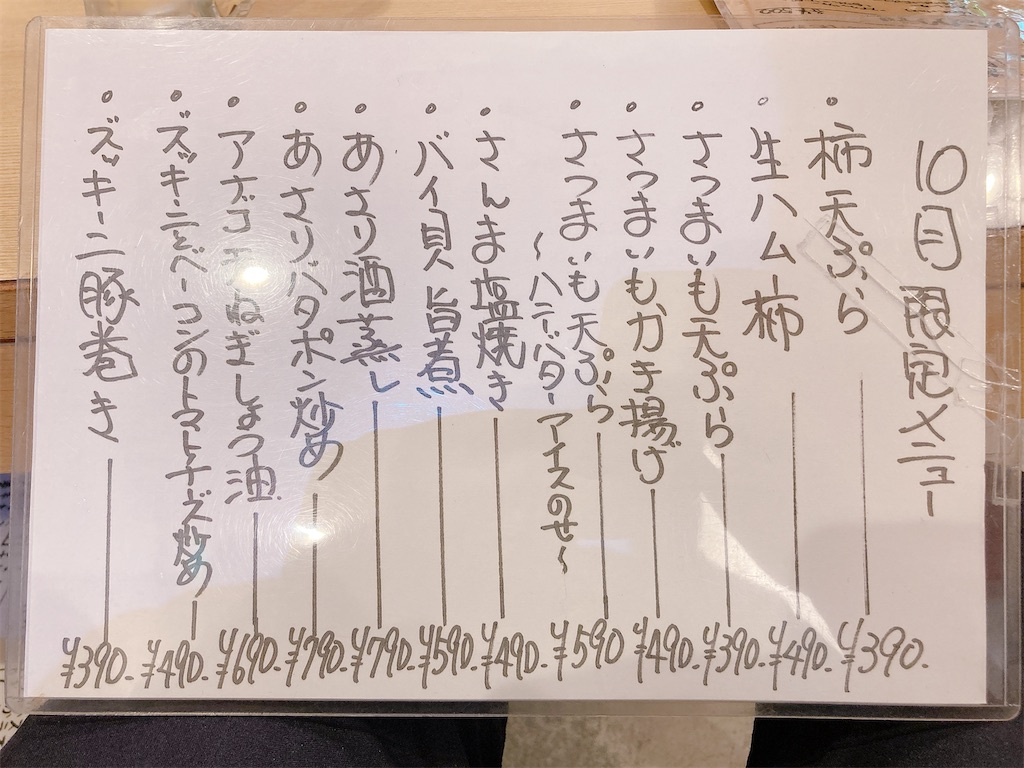 10月限定メニュー
・柿天ぷら ¥390.
・生ハム柿 ¥490.
・さつまいも天ぷら ¥390.
・さつまいもかき揚げ ¥490.
・さつまいも天ぷら ¥590
～ハニーバターアイスのせ～
・さんま塩焼き ¥490.
・バイ貝旨煮 ¥590.
・あさり酒蒸し ¥790.
・あさりバタポン炒め ¥790.
・アナゴ ねぎしょう油 ¥690.
・ズッキーニとベーコンのトマトチーズ炒め ¥490.
・ズッキーニ豚巻き ¥390.